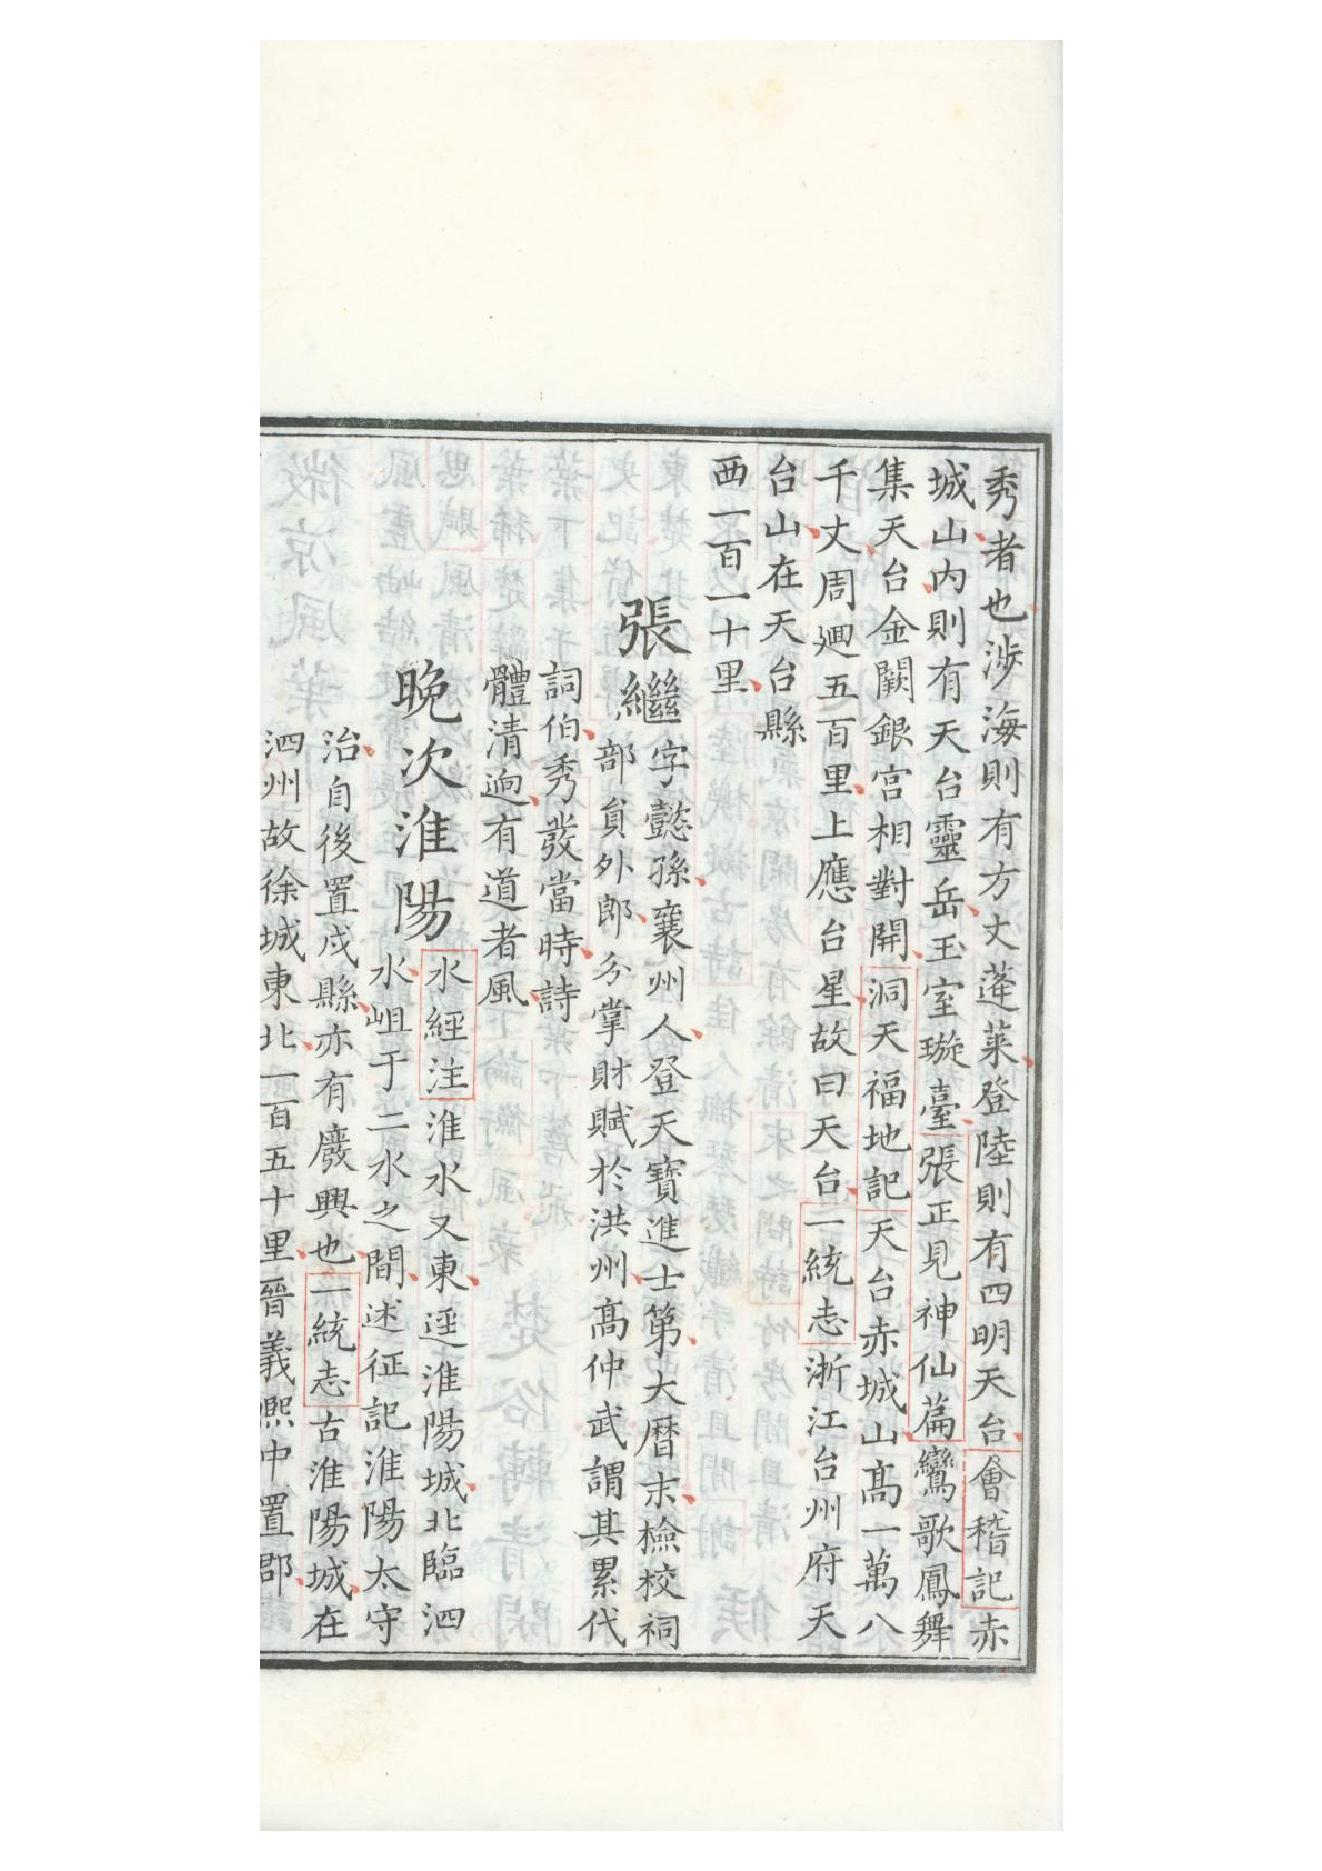 秀者也涉海則有方丈蓬萊登陸則有四明天台會稽記赤
城山内則有天台靈岳玉室璇臺張正見神仙篇鸞歌鳳舞
集天台金闕銀宫相對開洞天福地記天台赤城山高一萬八
千丈周廻五百里上應台星故曰天台一統志浙江台州府天
台山在天台縣
西一百一十里
張繼字懿孫襄州人登天寶進士第大暦末檢校祠
部貟外郎分掌財賦於洪州高仲武謂其累代
詞伯秀發當時詩
體清逈有道者風
晚次淮陽水經注淮水又東逕淮陽城北臨泗
水岨于二水之間述征記淮陽太守
治自後置戍縣亦有廢興也一統志古淮陽城在
泗州故徐城東北一百五十里晉義熈中置郡